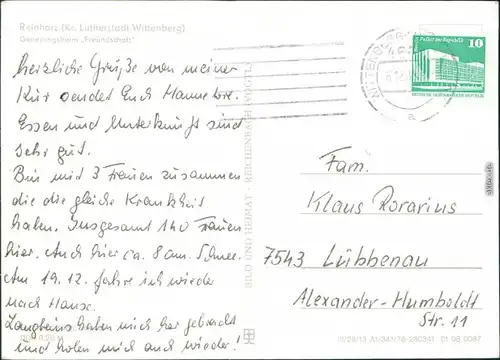 Reinharz (Kr. Lutherstadt Wittenberg)
Genesungsheim „Freundschaft"
Herzliche Grüße von meiner
Kur sendet Euch
Essen und Unterkunft sind
sehr gut.
Bin mit 3 Frauen zusammen
die die gleiche Krankheit
haben. Insgesamt 140 Frauen
hier. Auch hier ca. 8 cm Schnee.
Am 19.12. fahre ich wieder
nach Hause.
Langheins haben mich her gebracht
und holen mich auch wieder!
BILD UND HEIMAT · REICHENBACH (VOGTL)
10
Palast der Republik
DEUTSCHE DEMOKRATISCHE REPUBLIK
a
Fam.
Klaus Rorarius
7543 Lübbenau
Alexander-Humboldt
Str. 11
III/28/13 A1/34A/78 280341 01 08 0087